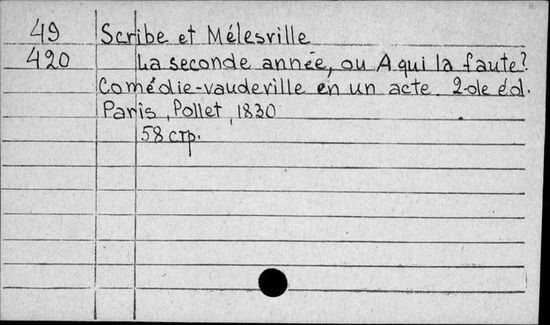 49 Scribe et Mélesville
420 La seconde année, ou A qui la faute?
Comédie-vaudeville en un acte. 2-de éd.
Paris, Pollet, 1830
58 стр.